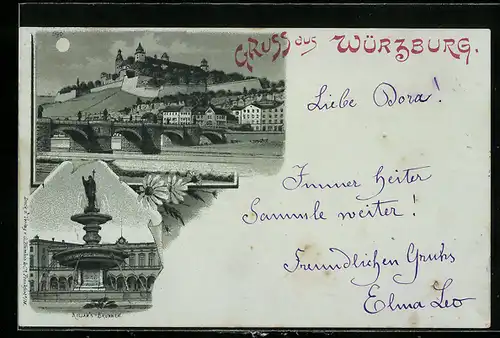 Gruss aus Würzburg.
Liebe Dora!
Immer heiter
Sammle weiter!
Freundlichen Gruhs
Elma Leo
Kilians-Brunnen